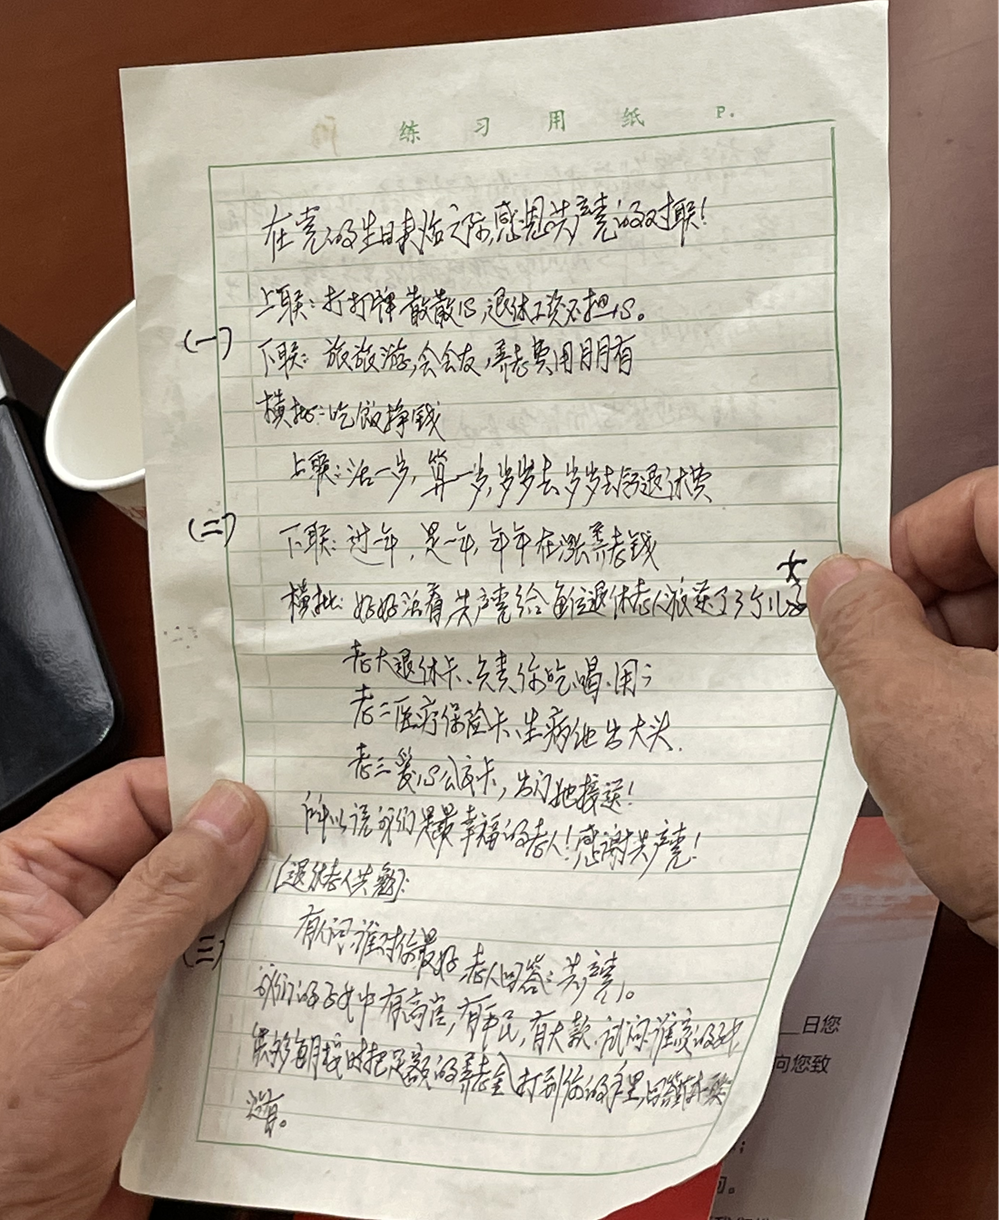 练习用纸 P.
在党的生日来临之际,感恩共产党的对联!
上联:打打牌 散散心,退休工资不担心。
(一)
下联:旅旅游,会会友,养老费用月月有
横批:吃饭挣钱
上联:活一岁,算一岁,岁岁去岁岁去领退休费
(二)
下联:过一年,是一年,年年在涨养老钱
女
横批:好好活着,共产党给每位退休老人派送了3个儿
老大退休卡、负责你吃、喝、用;
老二医疗保险卡、生病他出大头.
老三爱心公交卡,出门她接送!
所以说我们是最幸福的老人!感谢共产党!
(退休老人共勉):
有人问,谁对你最好,老人回答:共产党。
(三)
我们的子女中有高官,有平民,有大款.试问谁家的子女
能够每月按时把足额的养老金打到你的手里,回答
没有。
日您
向您致